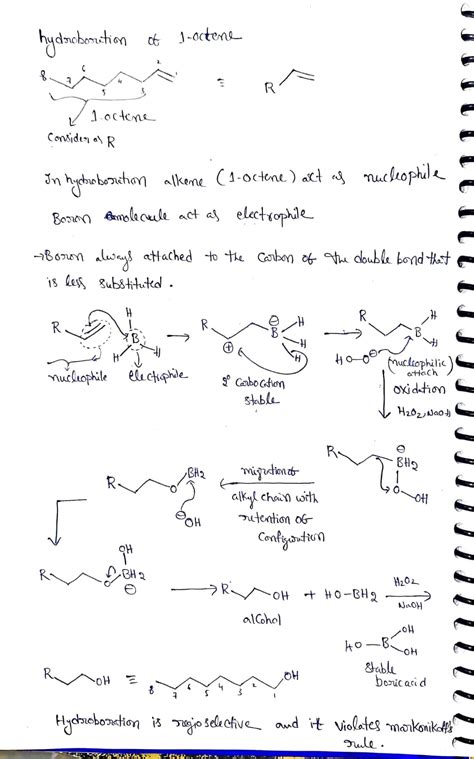 hydroboration of 1-octene
8 7 6 5 4 3 2 1 ≡ R
1-octene
Consider as R
In hydroboration alkene (1-octene) act as nucleophile
Boron molecule act as electrophile
→Boron always attached to the Carbon of the double bond that
is less substituted.
R H B H H → R ⊕ ⊖ B H H H → R B H H
H-O-O⊖ (nucleophilic)
attach
nucleophile electrophile
2° Carbocation
stable
oxidation
H2O2, NaOH
R ⊖ BH2 O-OH
migration of
alkyl chain with
retention of
Configuration
R O BH2
⊖OH
R O OH BH2 ⊖ → R OH + HO-BH2 H2O2 NaOH
alcohol
HO-B OH OH
Stable
boric acid
R OH ≡ 8 7 6 5 4 3 2 1 OH
Hydroboration is regioselective and it violates markonikoff's
rule.